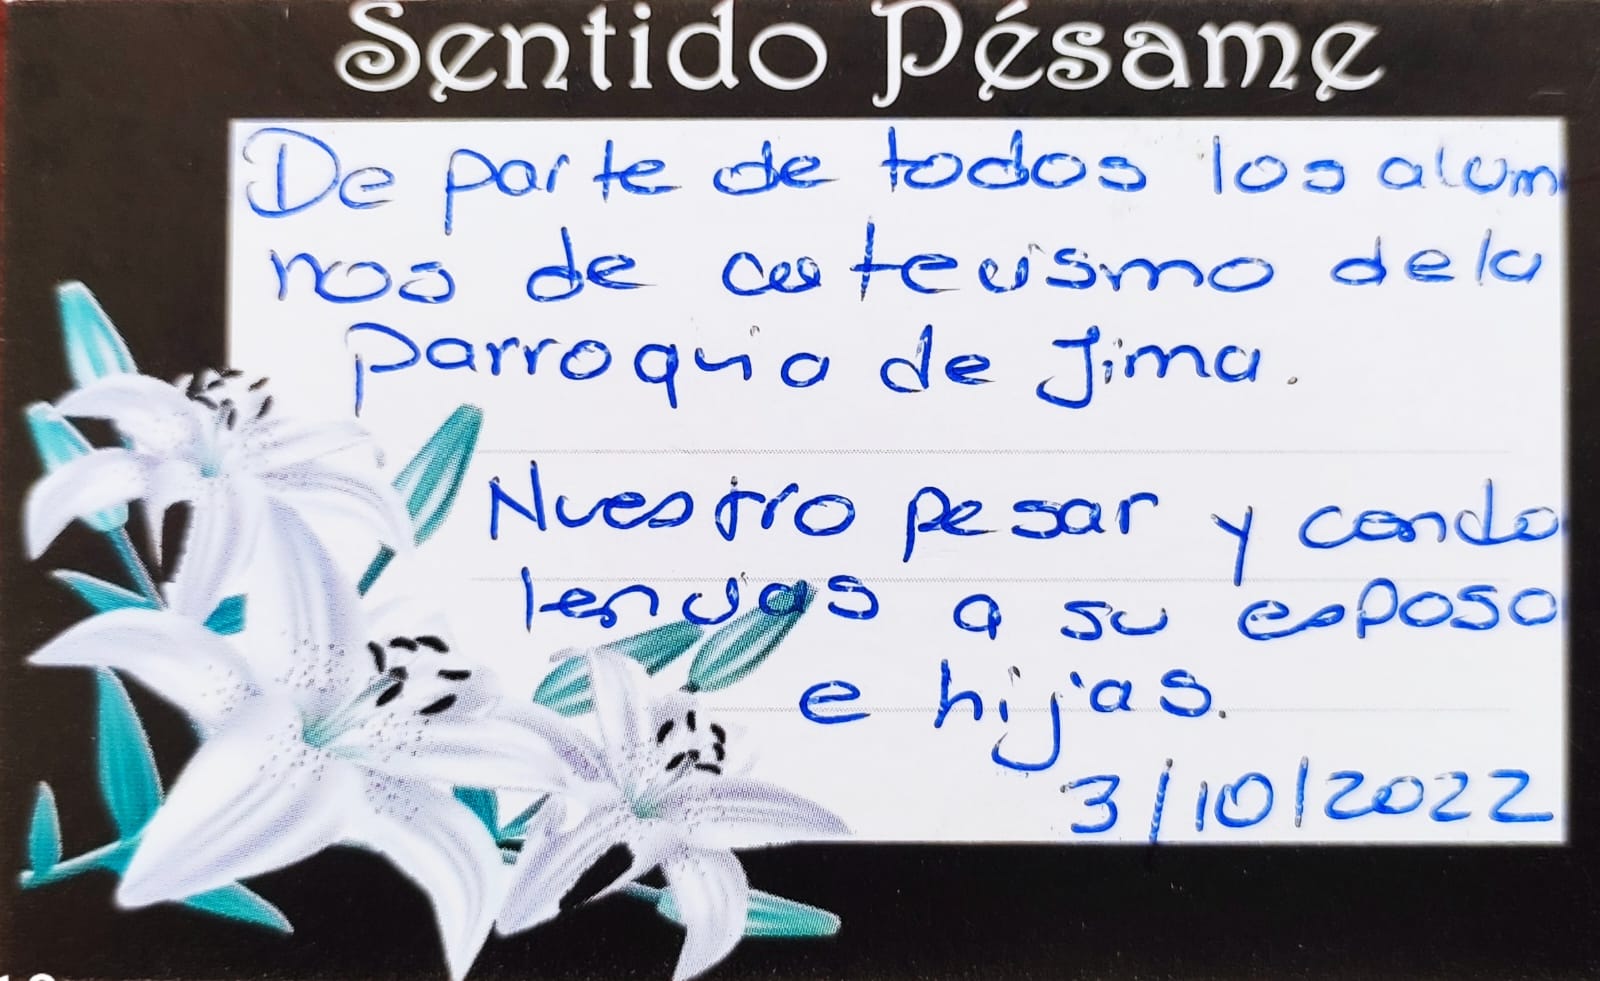 Sentido Pésame
De parte de todos los alum
nos de catecismo de la
parroquia de Jima.
Nuestro pesar y condo
lencias a su esposo
e hijas.
3/10/2022